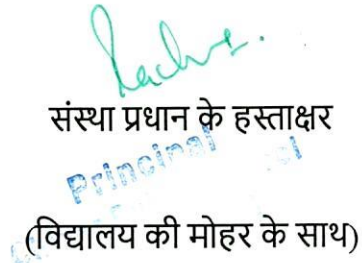 संस्था प्रधान के हस्ताक्षर
Principal
(विद्यालय की मोहर के साथ)